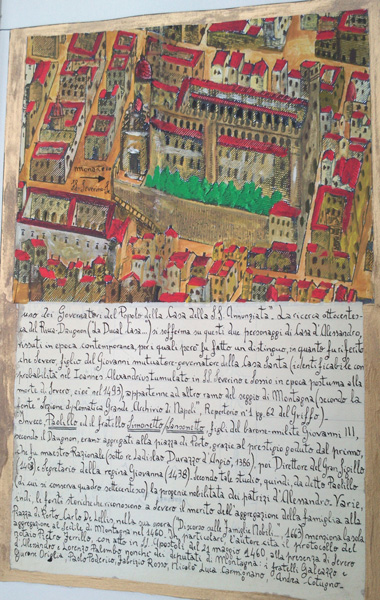 monastero
di S. Severino
uno dei Governatori del Popolo della Casa della S.S. Annunziata". La ricerca ottocentes-
ca del Ricca-Daugnon ("La Ducal Casa...") si sofferma su questi due personaggi di Casa d'Alessandro,
vissuti in epoca contemporanea, per i quali però fu fatto un distinguo, in quanto fu riferito
che Severo, figlio del Giovanni mutuatore-governatore della Casa Santa (identificabile con
probabilità nel Joannes Alexandri stumulato in SS. Severino e Sossio in epoca postuma alla
morte di Severo, cioè nel 1493), appartenne ad altro ramo del seggio di Montagna (secondo la
fonte "Scrpane, diplomatica Grande Archivio di Napoli", Repertorio n°1 pg. 62 del Griffo).
Invece Paolillo ed il fratello Simonello Sansonetto, figli del barone-milite Giovanni III,
secondo il Daugnon, erano aggregati alla piazza di Porto, grazie al prestigio goduto dal primo,
che fu maestro Razionale (sotto re Ladislao Durazzo d'Angiò, 1386), poi Direttore del Gran Sigillo
e segretario della regina Giovanna (1438). Secondo tale studio, quindi, da detto Paolillo
(di cui si conserva quadro settecentesco) la progenie nobilitata dei patrizi d'Alessandro. Varie,
indi, le fonti storiche che riconoscono a Severo il merito dell'aggregazione della famiglia alla
Piazza di Porto. Carlo De Lellis nella sua opera ("Discorso sulle Famiglie Nobili...", 1663) menziona la sola
aggregazione al Sedile di Montagna nel 1460. In particolare l'autore cita il protocollo del
notaio Pietro Ferrillo, con atto in SS. Apostoli del 21 maggio 1460, alla presenza di Severo
d'Alessandro e Lorenzo Palombo nonché dei deputati di Montagna: i fratelli Galeazzo e
Gurone Origlia, Paolo Poderico, Fabrizio Rosso, Nicola Luca Carmignano e Andrea Cotugno.